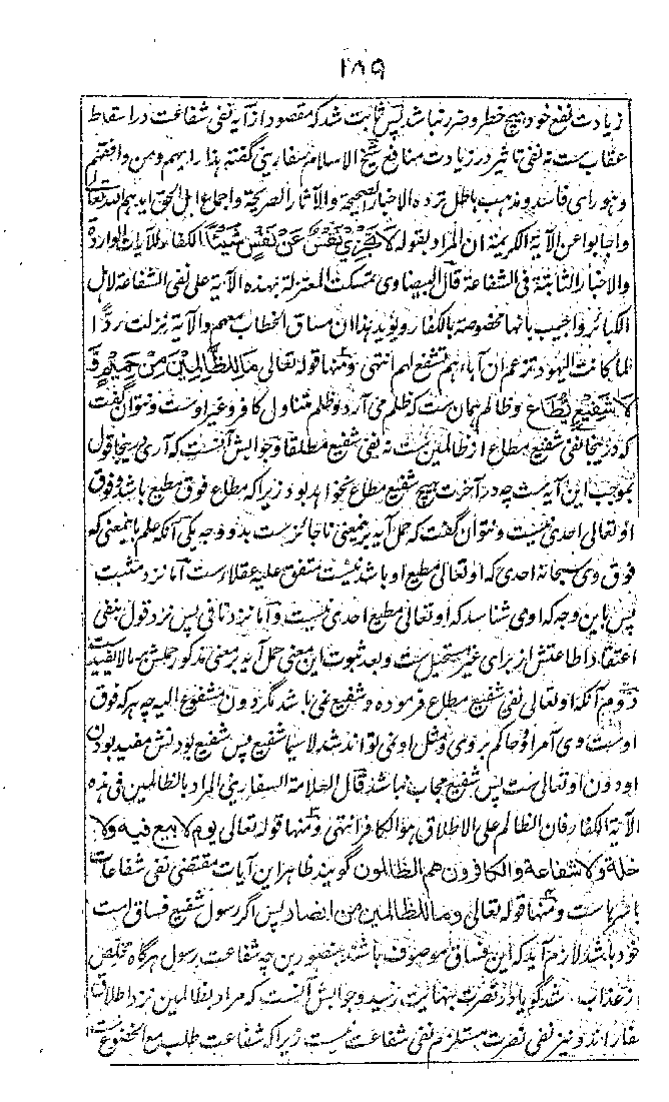 ۱۸۹
زیادت نفع خود و هیچ خطر و ضرر نباشد پس ثابت شد که مقصود از آیه نفی شفاعت در اسقاط
عقاب ست نه نفی تاثیر در زیادت منافع شیخ الاسلام سفارینی گفته هذا رایهم ومن وافقهم
وهو رای فاسد و مذهب باطل ترده الاخبار الصحیحة والآثار الصریحة واجماع اهل الحق ایدهم الله تعالی
واجابوا عن الآیة الکریمة ان المراد بقوله لا تجزی نفس عن نفس شیئا الکفار للآیات الواردة
والاخبار الثابتة فی الشفاعة قال البیضاوی تمسکت المعتزلة بهذه الآیة علی نفی الشفاعة لاهل
الکبائر واجیب بانها مخصوصة بالکفار ویؤید هذا ان مساق الخطاب معهم والآیة نزلت ردا
لما کانت الیهود تزعم ان آباءهم تشفع لهم انتهی ومنها قوله تعالی ما للظالمین من حمیم و
لا شفیع یطاع وظالم همان ست که ظلم می آرد وظلم متناول کافر وغیر اوست ونتوان گفت
که درینجا نفی شفیع مطاع از ظالمین ست نه نفی شفیع مطلقا وجوابش آنست که آری درینجا قول
بموجب این آیه ست چه در آخرت هیچ شفیع مطاع نخواهد بود زیرا که مطاع فوق مطیع باشد وفوق
او تعالی احدی نیست ونتوان گفت که حمل آیه برین معنی ناجائز ست بدو وجه یکی آنکه علم باین معنی که
فوق وی سبحانه احدی که او تعالی مطیع او باشد نیست متفق علیه عقلاء است اما نزد مثبت
پس باین وجه که او می شناسد که او تعالی مطیع احدی نیست واما نزد نافی پس نزد قول بنفی
اعتقاد اطاعتش از برای غیر مستحیل ست وبعد ثبوت این معنی حمل آیه بر معنی مذکور حملش بمالا یفید ست
دوم آنکه او تعالی نفی شفیع مطاع فرموده وشفیع نمی باشد مگر دون مشفوع الیه چه هر که فوق
اوست وی آمر او وحاکم بر وی ومثل او نمی تواند شد لاسیما شفیع پس شفیع بودنش مفید بودن
او دون او تعالی ست پس شفیع مجاب نباشد قال العلامة السفارینی المراد بالظالمین فی هذه
الآیة الکفار فان الظالم علی الاطلاق هو الکافر انتهی ومنها قوله تعالی یوم لا بیع فیه ولا
خلة ولا شفاعة والکافرون هم الظالمون گویند ظاهر این آیات مقتضی نفی شفاعات
باسرها ست ومنها قوله تعالی وما للظالمین من انصار پس اگر رسول شفیع فساق امت
خود باشد لازم آید که این فساق موصوف باشند بمنصورین چه شفاعت رسول هرگاه مخلص
از عذاب شد گویا در نصرت بنهایت رسید وجوابش آنست که مراد بظالمین نزد اطلاق
کفار اند ونیز نفی نصرت مستلزم نفی شفاعت نیست زیرا که شفاعت طلب مع الخضوع ست